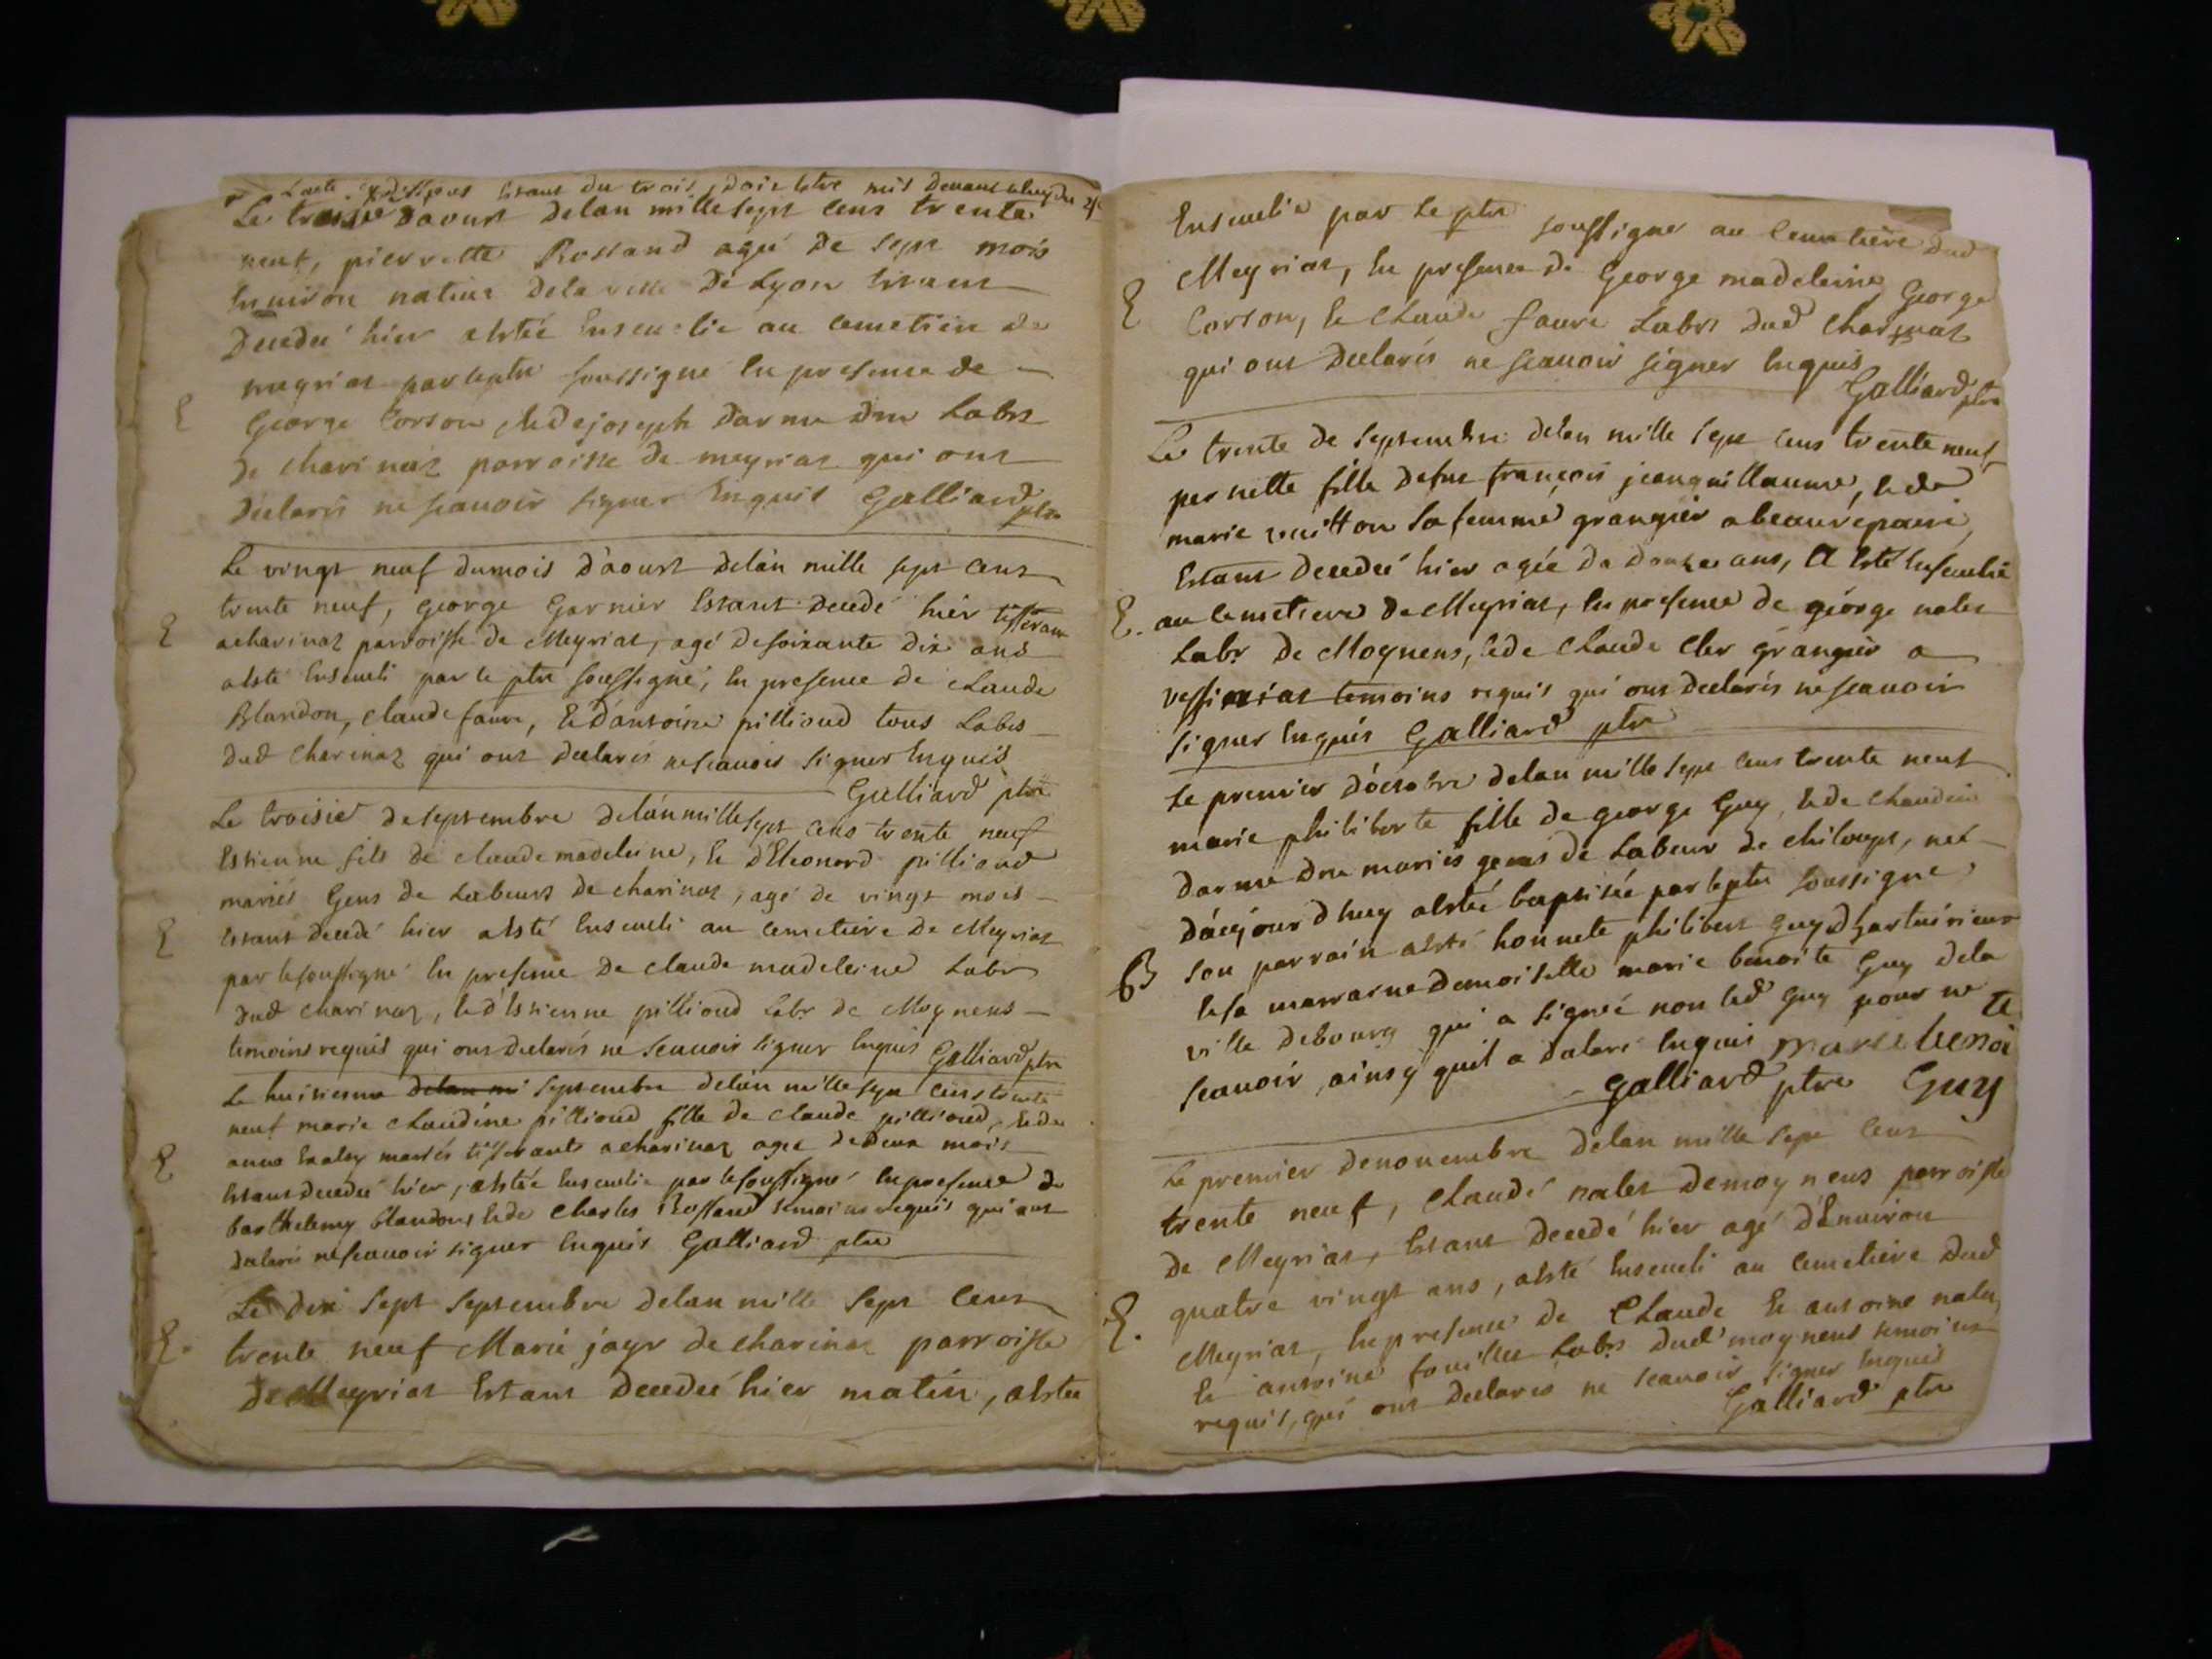 Lacte cy dessous estant du trois, doit estre mis devant celuy du
Le troisie daoust delan mille sept cens trente
neuf, pierrette Rossand agée de sept mois
environ native dela ville de Lyon estant
Decedée hier a estée Ensevelie au cemetiere de
meyriat par le ptre soussigné En presence de
E George Corson, et de joseph Darme Labrs
de charinaz parroisse de meyriat qui ont
declarés ne scavoir signer Enquis Galliard ptre
Le vingt neuf du mois d'aoust delan mille sept cens
trente neuf, George Garnier Estant decedé hier tisseran
E acharinaz parroisse de Meyriat, agé de soixante dix ans
a esté Enseveli par le ptre soussigné, En presence de Claude
Blandon, Claude faure, E d'antoine pillioud tous Labrs
dud Charinaz qui ont declarés ne scavoir signer Enquis
Galliard ptre
Le troisie de septembre delan mille sept cens trente neuf
Estienne fils de claude madeleine, E d'Eleonord pillioud
mariés Gens de Labeurs de charinaz, agé de vingt mois
E Estant decedé hier a esté Enseveli au cemetiere de Meyriat
par le soussigné En presence de claude madeleine Labr
dud charinaz, E d'Estienne pillioud Labr de Moynens
temoins requis qui ont declarés ne scavoir signer Enquis Galliard ptre
Le huitiesme delan mi septembre delan mille sept cens trente
neuf marie claudine pillioud fille de claude pillioud, E de
E anne mariés tisserants acharinaz agée de deux mois
Estant decedée hier, a estée Ensevelie par le soussigné En presence de
barthelemy blandon, E de Charles Rossand temoins requis qui ont
declarés ne scavoir signer Enquis Galliard ptre
Le dix sept septembre delan mille sept cens
E. trente neuf Marie jayr de charinaz parroisse
de Meyriat Estant decedée hier matin, a estée
Ensevelie par le ptre soussigner au cemetiere dud
Meyriat, En presence de George madeleine, George
E Corson, E claude faure Labrs dud charinaz
qui ont declarés ne scavoir signer Enquis
Galliard ptre
Le trente de septembre delan mille sept cens trente neuf
pernette fille de fut françois jeanguillaume, E de
marie vuitton sa femme granger a beaurepaire,
Estant decedée hier agée de douze ans, A Esté Ensevelie
E. au cemetiere de Meyriat, En presence de george nalet
Labr de Moynens, E de claude cler granger a
temoins requis qui ont declarés ne scavoir
signer Enquis Galliard ptre
Le premier d'octobre delan mille sept cens trente neuf
marie philiberte fille de george Guy, E de claudine
Darme mariés gens de Labeur de chiloup, née
d'aujourdhuy a estée baptisée par le ptre soussigné
B son parrain a esté honnete philibert guy
E sa marraine Demoiselle marie benoite Guy dela
ville de bourg qui a signée non led guy pour ne
scavoir, ainsy quil a declaré Enquis marie benoi
te
Galliard ptre Guy
Le premier de novembre delan mille sept cens
trente neuf, claude nalet de moynens parroisse
de Meyriat, Estant decedé hier agé d'Environ
E. quatre vingt ans, a esté Enseveli au cemetiere dud
Meyriat, En presence de Claude E antoine nalet,
E antoine Labrs dud moynens temoins
requis, qui ont declarés ne scavoir signer Enquis
Galliard ptre